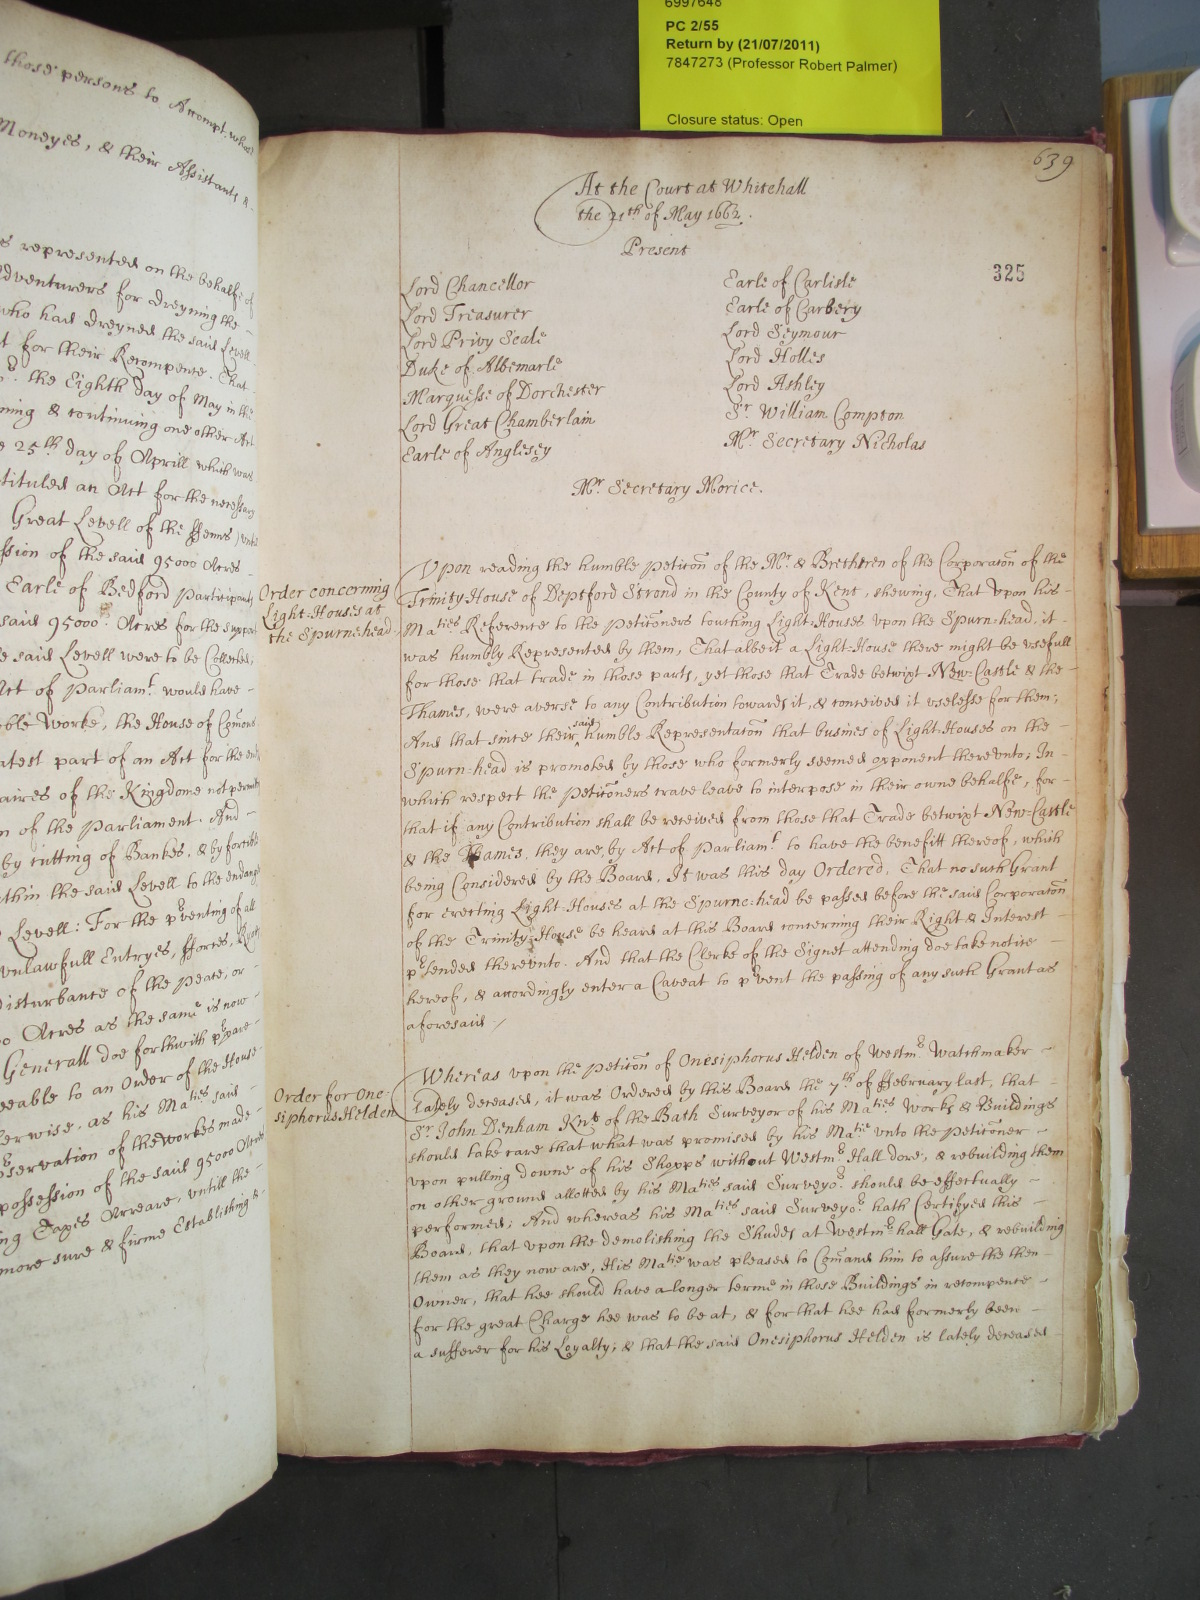 6997648
PC 2/55
Return by (21/07/2011)
7847273 (Professor Robert Palmer)
Closure status: Open
those persons to Accompt what
Moneyes, & their Assistants &
s represented on the behalfe of
dventurers for dreyning the
who had dreyned the said Levell
t for their Recompence. That
the Eighth day of May in the
ning & continuing one other Act
25th day of Aprill which was
tituled an Act for the necessary
Great Levell of the ffenns) untill
ssion of the said 95000 Acres
Earle of Bedford participants
said 95000 Acres for the support
e said Levell were to be Collected,
Act of Parliamt. would have
ble Worke, the House of Comons
atest part of an Act for the
aires of the Kingdome not permitt
n of the Parliament. And
by cutting of Bankes, & by forcible
thin the said Levell to the endang
Levell: For the pventing of all
vnlawfull Entryes, fforces, Ryots
disturbance of the peace, or
Acres as the same is now
Generall doe forthwith ppare
eeable to an Order of the House
erwise, as his Maties said
servation of the workes made
possession of the said 95000 Acres
ng Taxes Arreare, untill the
more sure & firme Establishing
639
At the Court at Whitehall
the 21th of May 1662.
Present
325
Lord Chancellor
Lord Treasurer
Lord Privy Seale
Duke of Albemarle
Marquesse of Dorchester
Lord Great Chamberlain
Earle of Anglesey
Earle of Carlisle
Earle of Carbery
Lord Seymour
Lord Holles
Lord Ashley
Sr. William Compton
Mr. Secretary Nicholas
Mr. Secretary Morice.
Order concerning
Light-Houses at
the Spurne-head
Vpon reading the humble Peticon of the Mr. & Bretheren of the Corporaton of the
Trinity House of Deptford Strond in the County of Kent, shewing, That vpon his
Maties Reference to the Peticoners touching Light-Houses vpon the Spurn-head, it
was humbly Represented by them, That albeit a Light-House there might be vsefull
for those that trade in those parts, yet those that Trade betwixt New-Castle & the
Thames, were averse to any Contribution towards it, & conceived it vselesse for them;
And that since their said humble Representaton that busines of Light-Houses on the
Spurn-head is promoted by those who formerly seemed opponent therevnto; In
which respect the Peticoners crave leave to interpose in their owne behalfe, for
that if any Contribution shall be received from those that Trade betwixt New-Castle
& the Thames, they are, by Act of Parliamt. to have the benefitt thereof, which
being Considered by the Board, It was this day Ordered, That no such Grant
for erecting Light-Houses at the Spurne-head be passed before the said Corporaton
of the Trinity-House be heard at this Board concerning their Right & Interest
ptended therevnto. And that the Clerke of the Signet attending doe take notice
hereof, & accordingly enter a Caveat to pvent the passing of any such Grant as
aforesaid /
Order for One-
siphorus Helden
Whereas vpon the Peticon of Onesiphorus Helden of Westmr. Watchmaker
lately deceased, it was Ordered by this Board the 7th of ffebruary last, that
Sr. John Denham Knt. of the Bath Surveyor of his Maties Works & Buildings
should take care that what was promised by his Matie vnto the Peticoner
vpon pulling downe of his Shopps without Westmr. Hall dore, & rebuilding them
on other ground allotted by his Maties said Surveyor. should be effectually
performed; And whereas his Maties said Surveyor. hath Certifyed this
Board, that vpon the demolishing the Shudes at Westmr hall Gate, & rebuilding
them as they now are, His Matie was pleased to Comand him to assure the then
Owner, that hee should have a longer terme in those Buildings in recompence
for the great Charge hee was to be at, & for that hee had formerly been
a sufferer for his Loyalty; & that the said Onesiphorus Helden is lately deceased